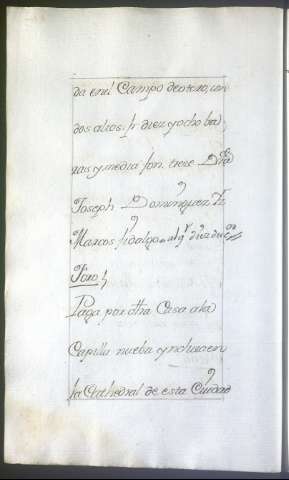 da en el Campo de otero, con
dos altos: fr. diez y ocho ba
ras y media fon. trece
Joseph Dominguez
Marcos hidalgo
Foro
Paga por dha Casa a la
Capilla nueba yncluca en
la Cathedral de esta Ciudad